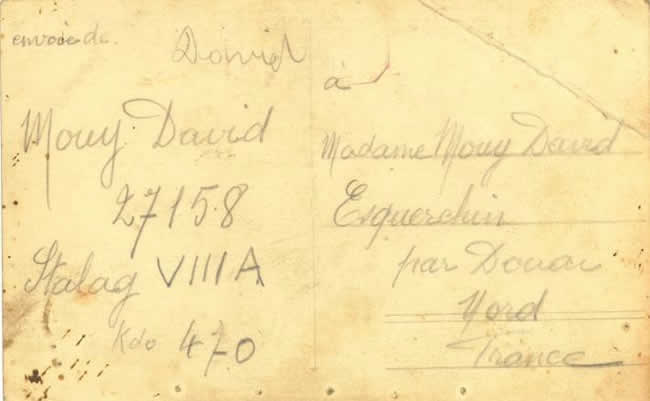 envoi de David
Mouy David
27158
Stalag VIII A
Kdo 470
à
Madame Mouy David
Esquerchin
par Douai
Nord
France